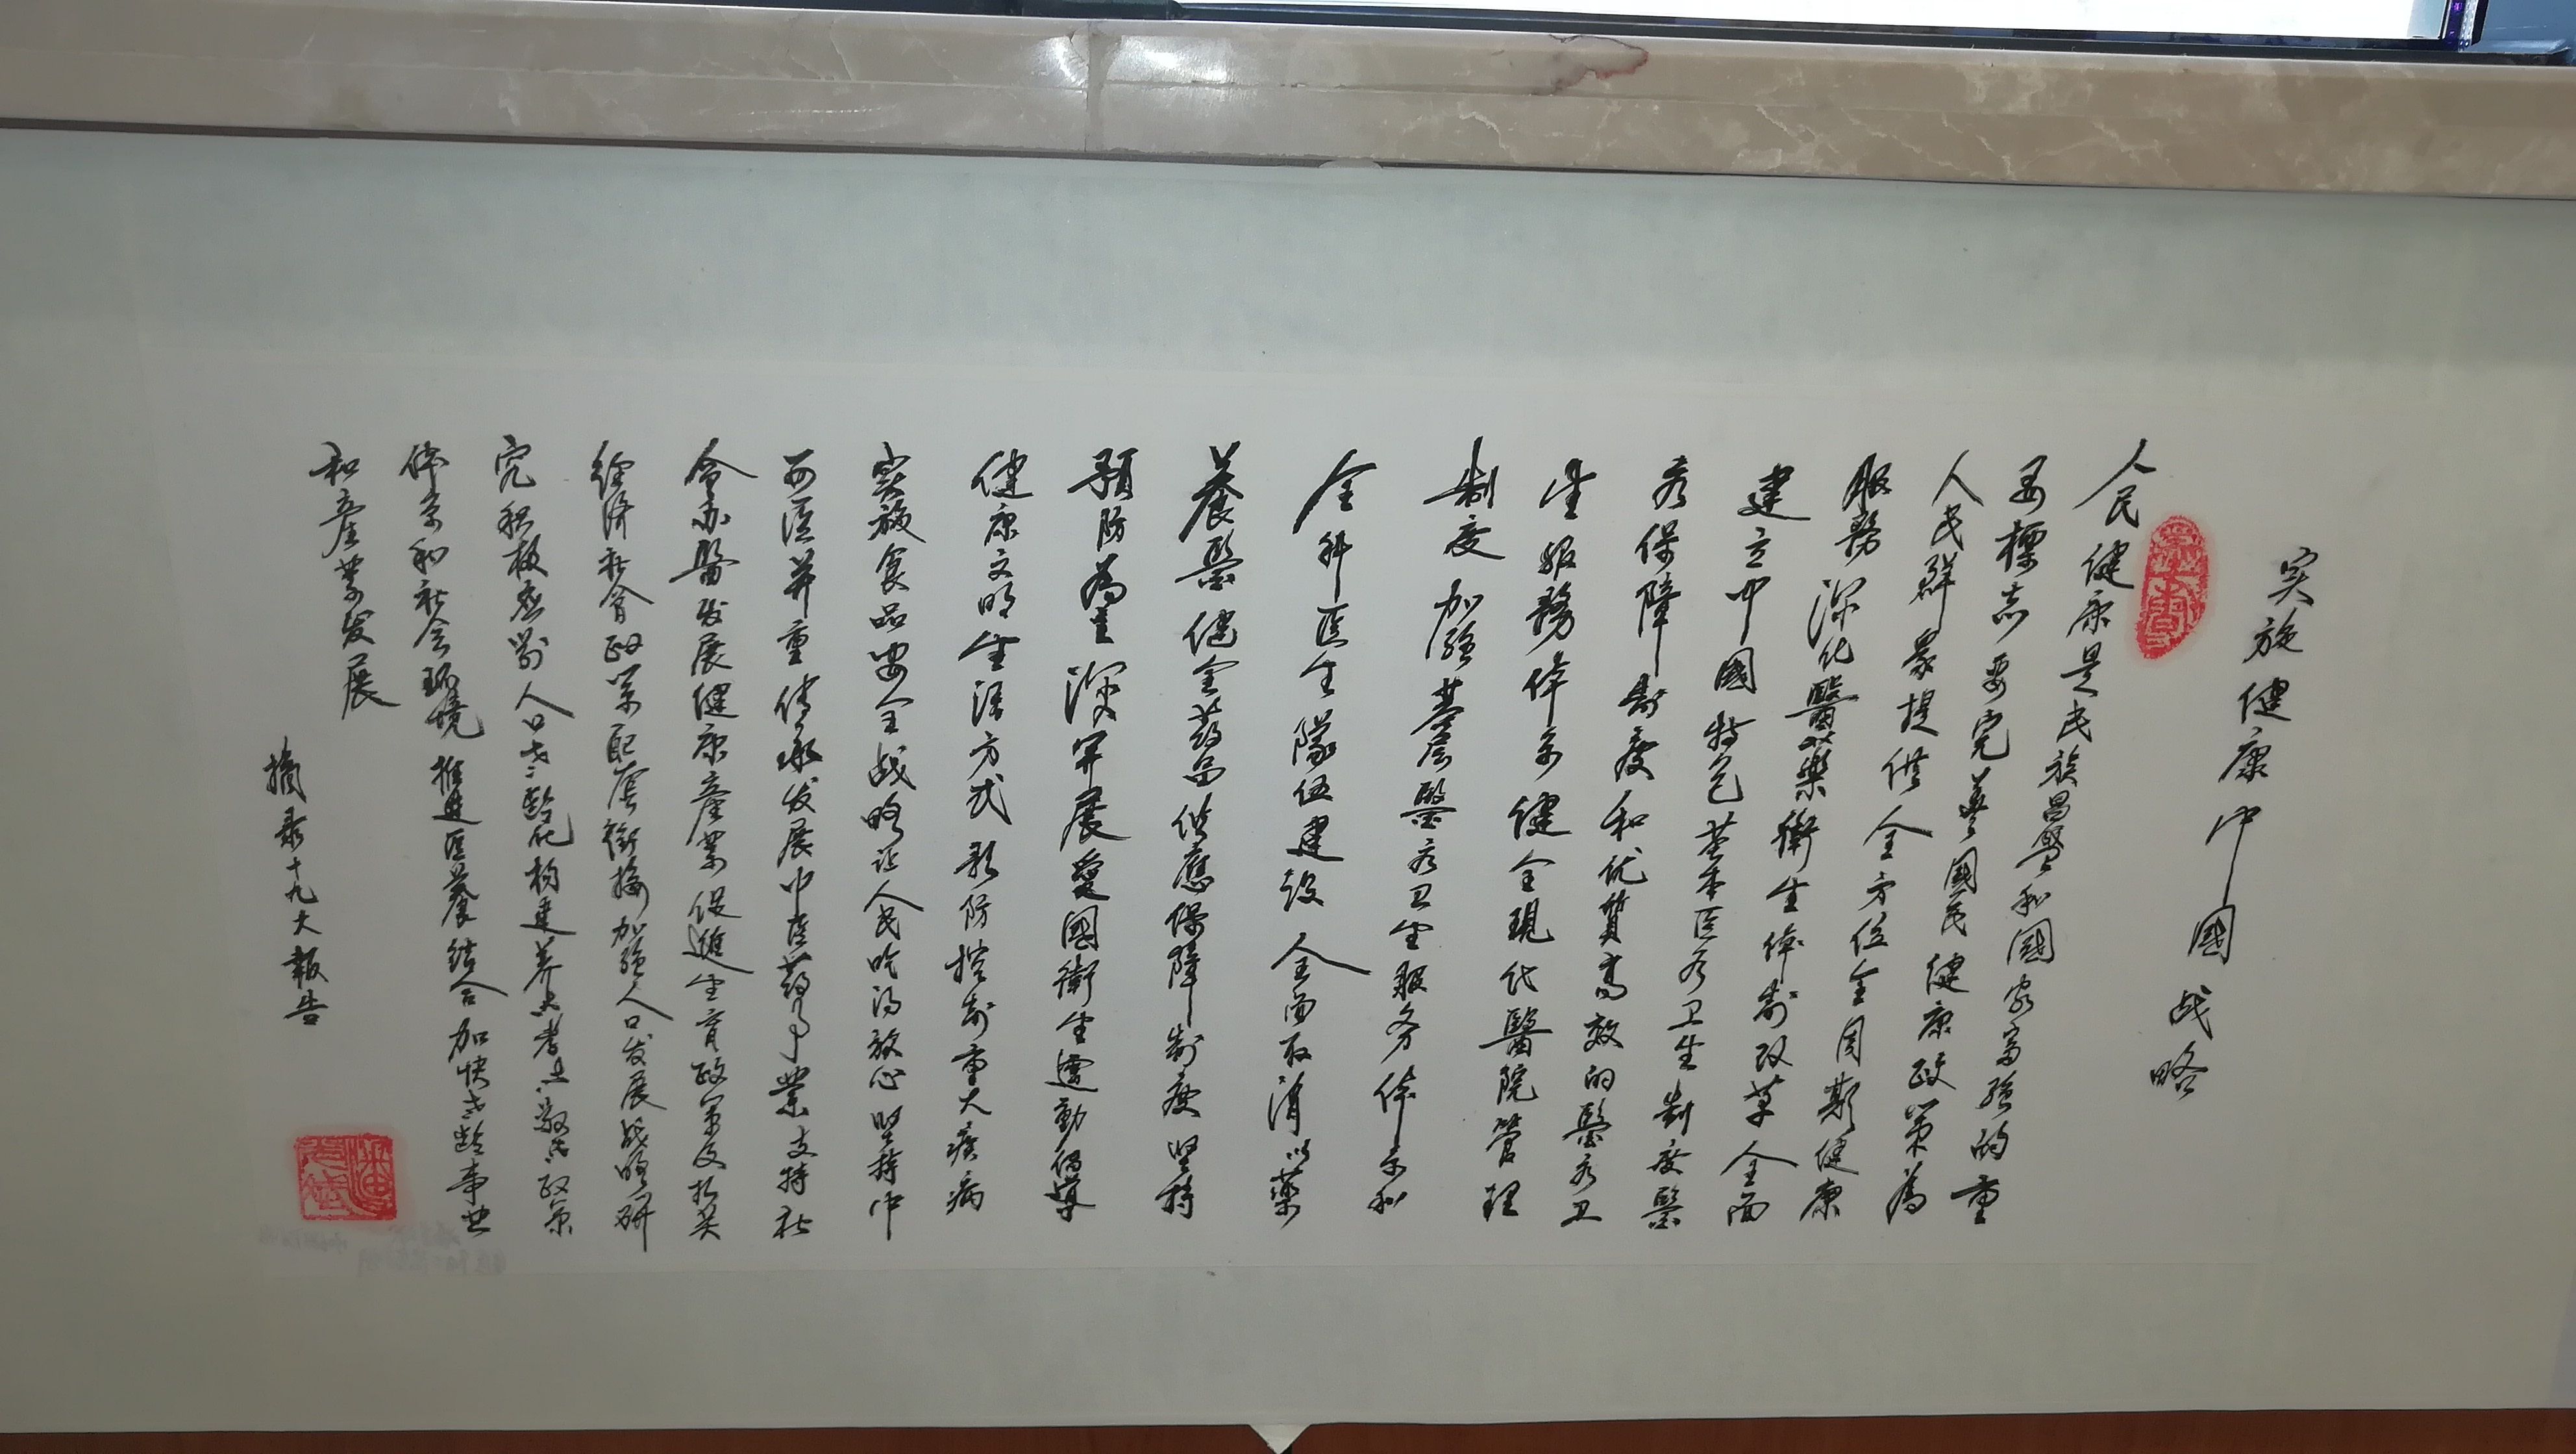 实施健康中國战略
人民健康是民族昌盛和國家富强的重
要標志要完善國民健康政策為
人民群眾提供全方位全周期健康
服務深化醫藥衛生体制改革全面
建立中國特色基本医疗卫生制度醫
疗保障制度和优質高效的醫疗卫
生服務体系健全現代醫院管理
制度加强基层醫疗卫生服务体系和
全科医生隊伍建設全面取消以藥
養醫健全药品供應保障制度坚持
預防為主深入開展愛國衛生運動倡導
健康文明生活方式予防控制重大疾病
实施食品安全战略让人民吃得放心坚持中
西医並重传承发展中医药事業支持社
会办醫发展健康産業促進生育政策及相关
经济社會政策配套銜接加强人口发展战略研
究积极应对人口老龄化构建养老孝老敬老政策
体系和社会环境推進医養结合加快老龄事业
和産業发展
摘录十九大報告